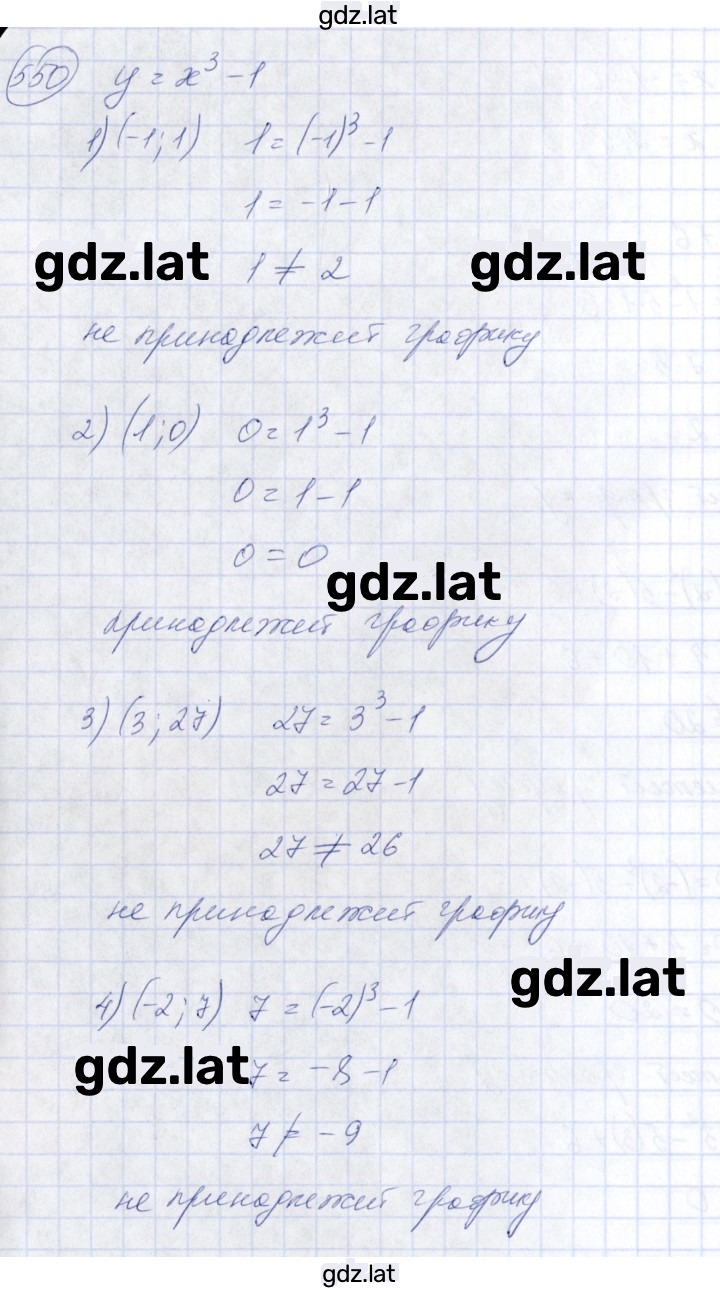 gdz.lat
550 y = x³ - 1
1) (-1; 1) 1 = (-1)³ - 1
1 = -1 - 1
gdz.lat 1 ≠ 2 gdz.lat
не принадлежит графику
2) (1; 0) 0 = 1³ - 1
0 = 1 - 1
0 = 0
gdz.lat
принадлежит графику
3) (3; 27) 27 = 3³ - 1
27 = 27 - 1
27 ≠ 26
не принадлежит графику
gdz.lat
4) (-2; 7) 7 = (-2)³ - 1
gdz.lat 7 = -8 - 1
7 ≠ -9
не принадлежит графику
gdz.lat